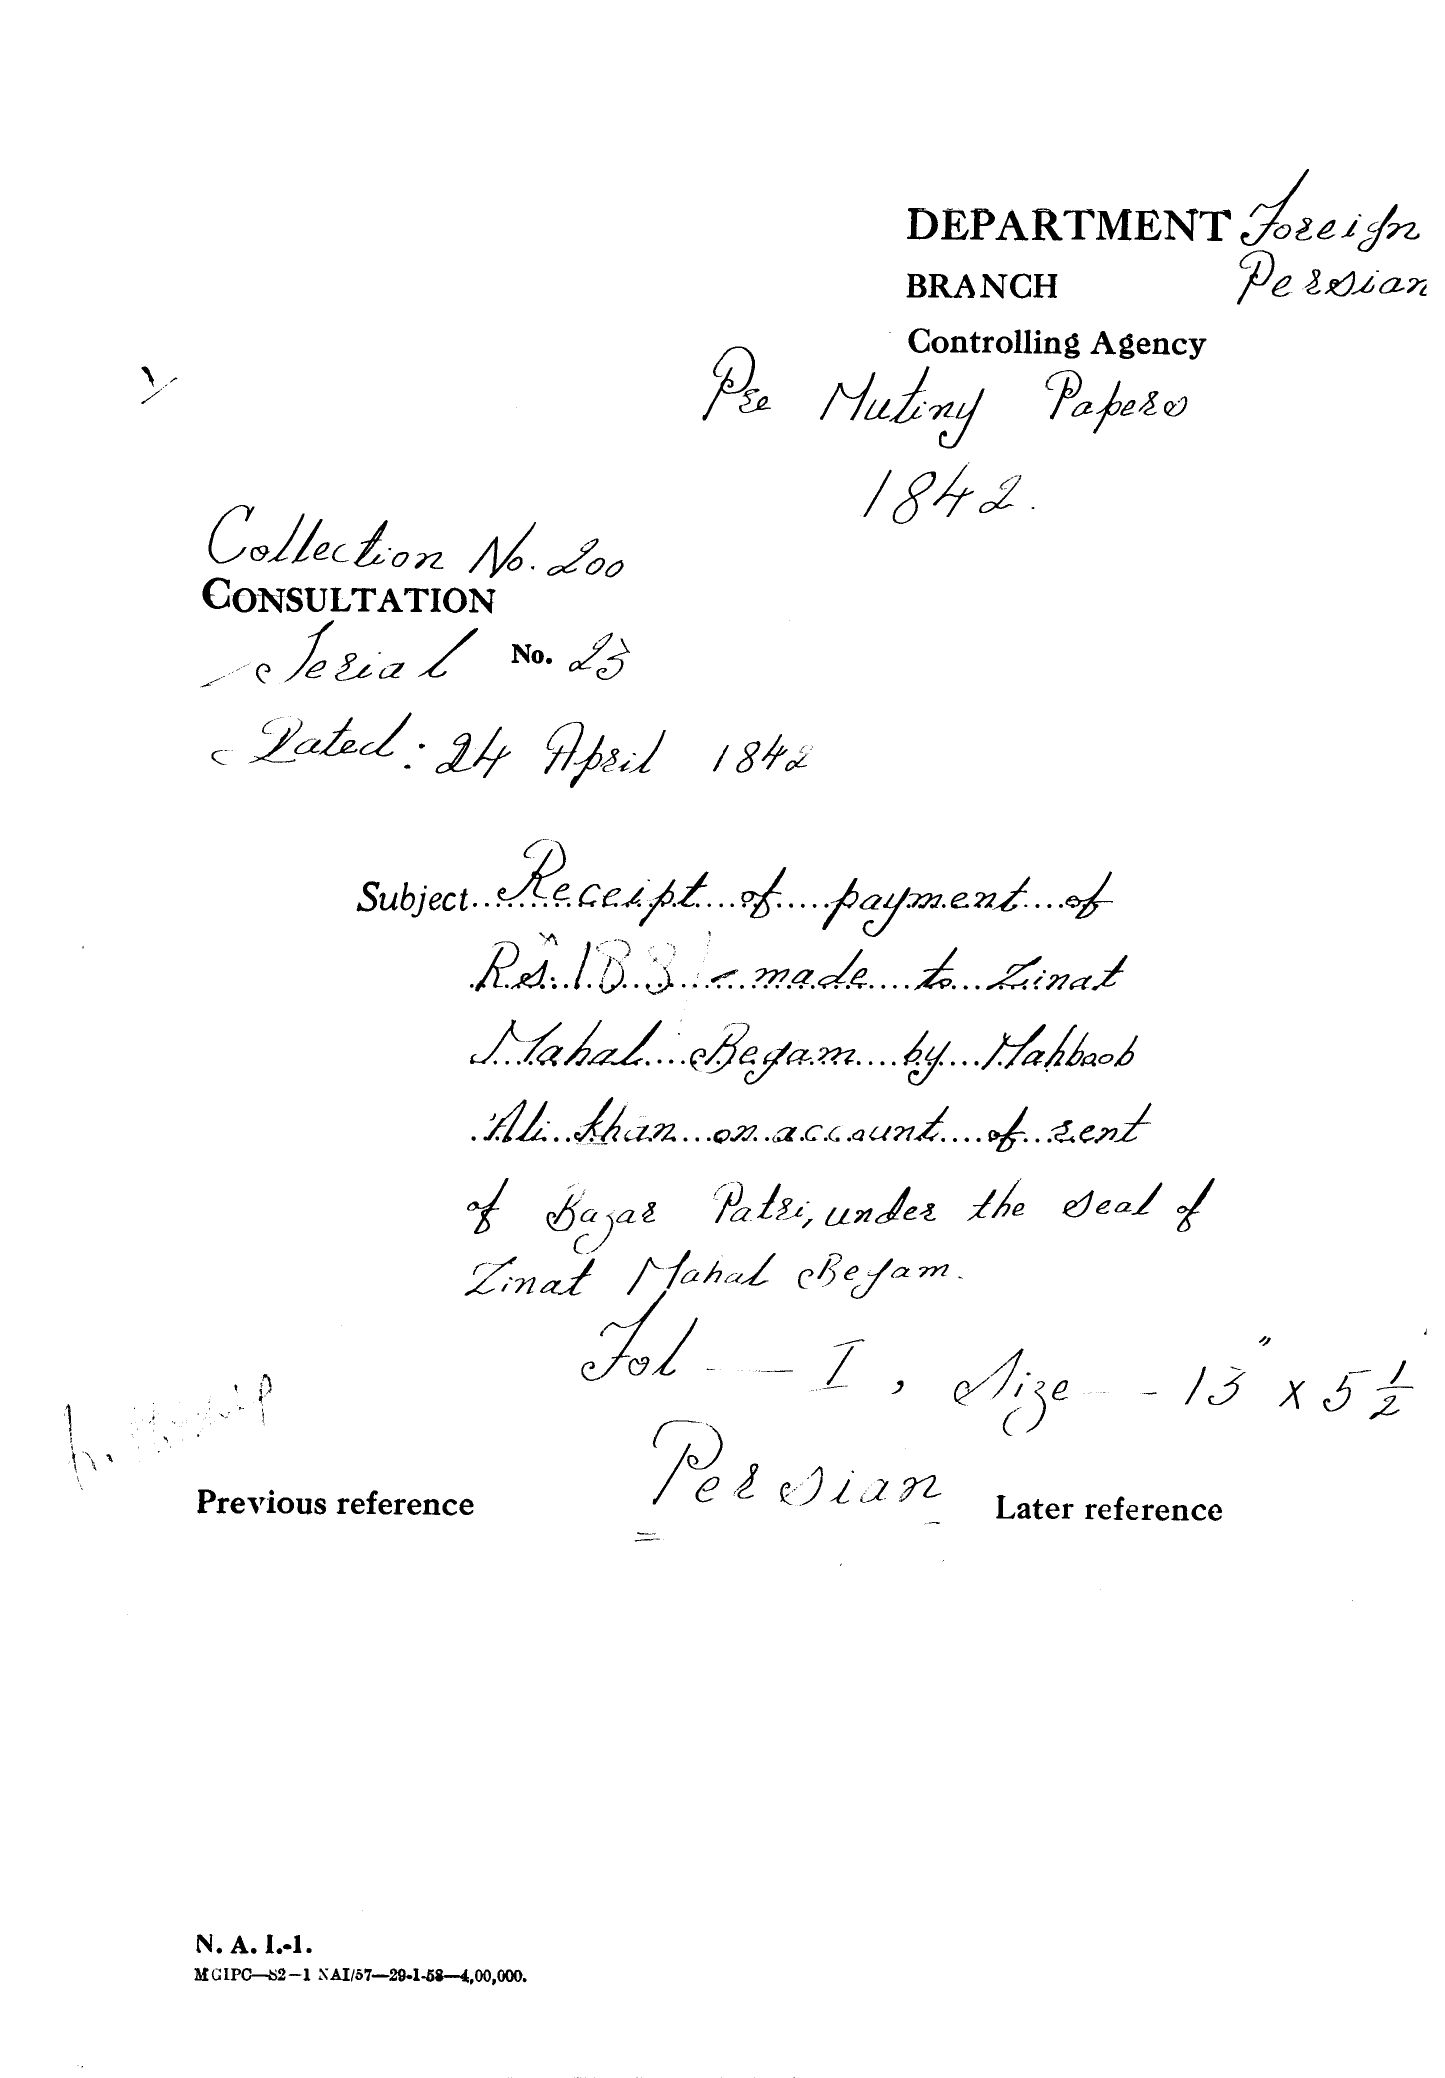 DEPARTMENT Foreign
BRANCH Persian
Controlling Agency
Pre Mutiny Papers
1842.
Collection No. 200
CONSULTATION
Serial No. 23
Dated: 24 April 1842
Subject Receipt of payment of
Rs. 183/- made to Zinat
Mahal Begam by Mahboob
Ali Khan on account of rent
of Bazar Patri, under the seal of
Zinat Mahal Begam.
Fol — I, Size — 13" x 5 1/2
Persian
Previous reference Later reference
N. A. I.-1.
MGIPC—S2—1 NAI/57—29-1-58—4,00,000.